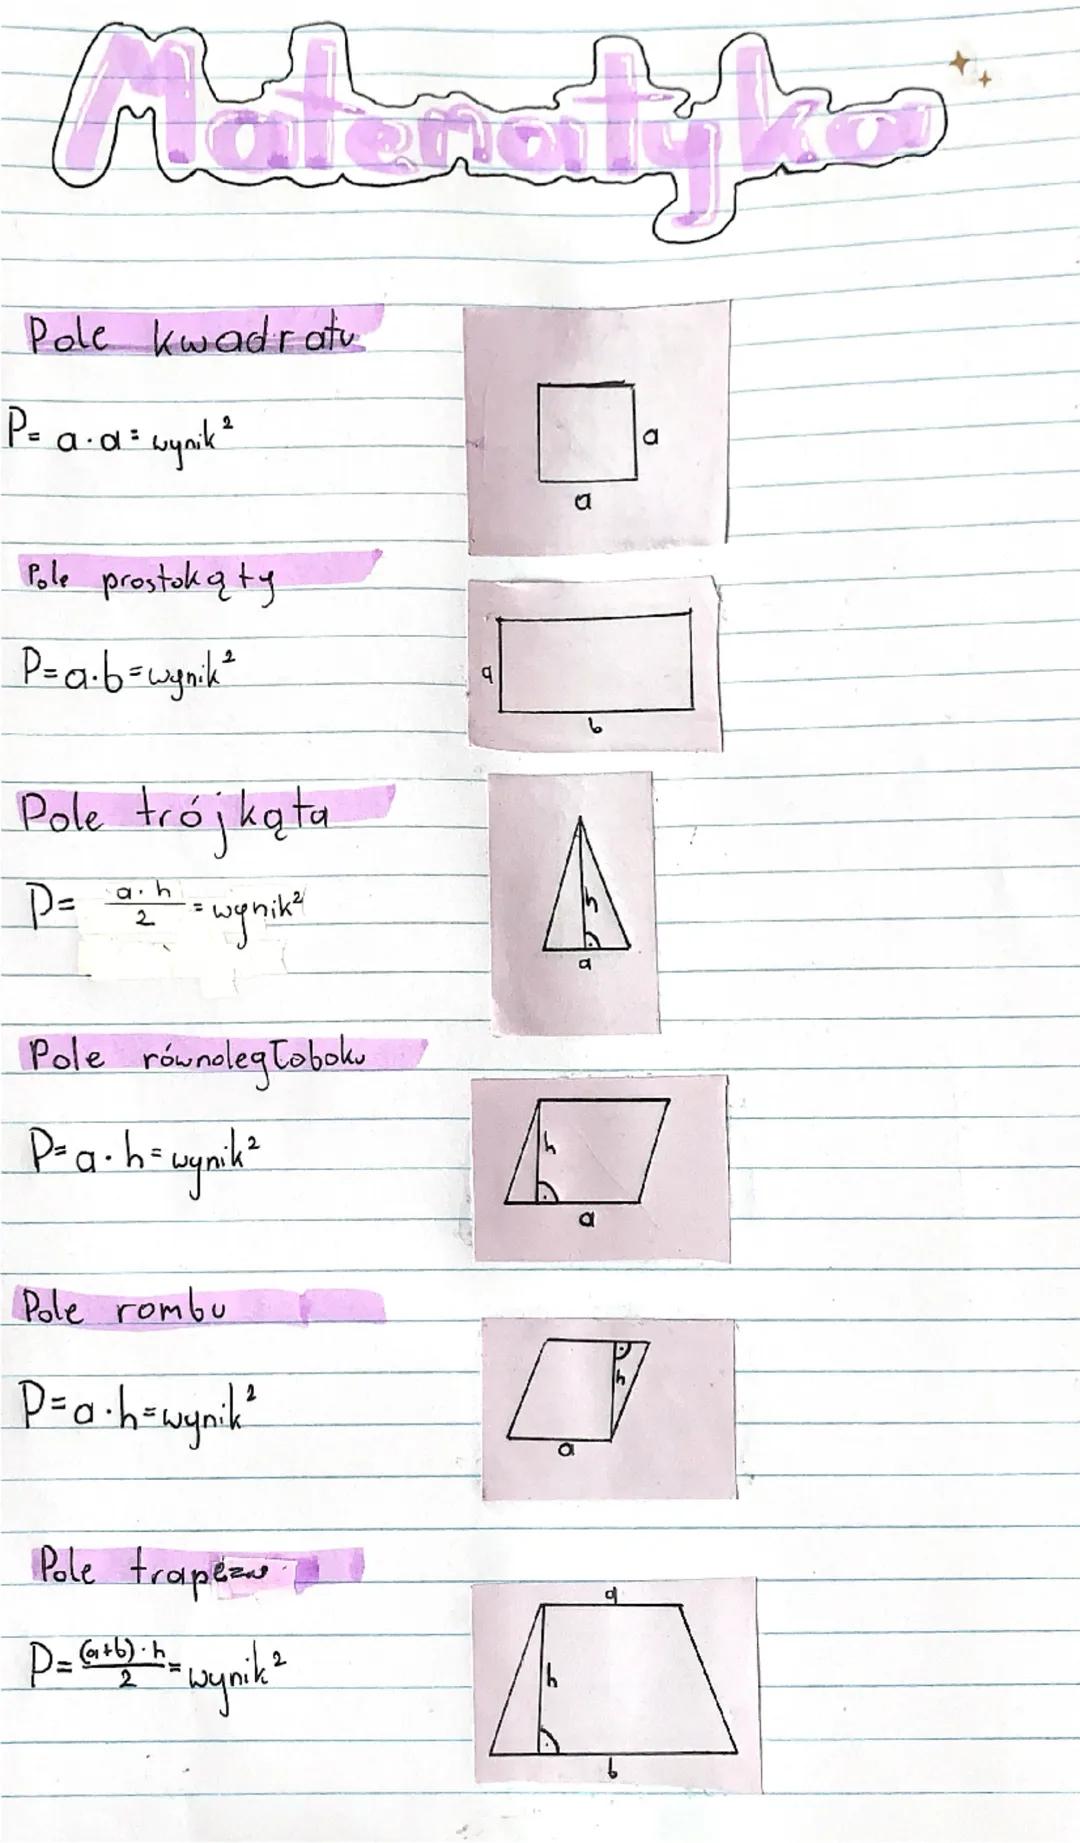 Matematyka
Pole kwadratu
P= a·a= wynik²
a
a
Pole prostokąty
P=a·b=wynik²
a
b
Pole trójkąta
P= a·h/2 = wynik²
h
a
Pole równoległoboku
P=a·h=wynik²
h
a
Pole rombu
P=a·h=wynik²
h
a
Pole trapezu
P=(a+b)·h/2= wynik²
a
h
b